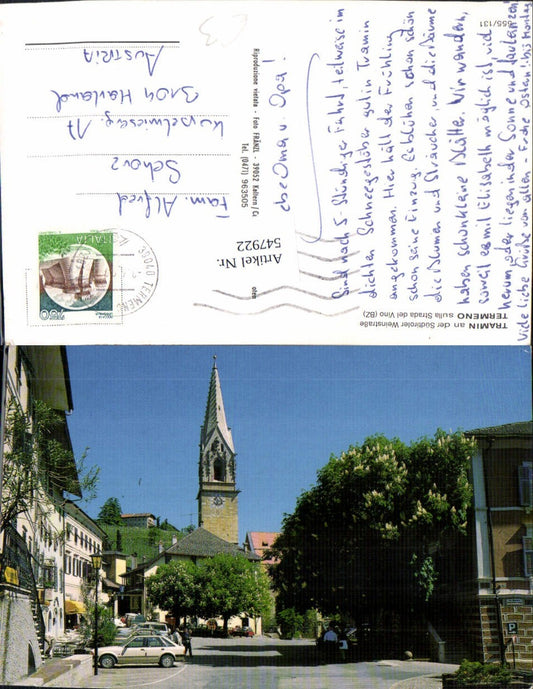 TRAMIN an der Südtiroler Weinstraße
TERMENO sulla Strada del Vino (BZ)
055/131
ebe Oma u. Opa!
Sind nach 5-stündiger Fahrt, teilweise im
dichten Schneegestöber gut in Tramin
angekommen. Hier hält der Frühling
schon seine Einzug. Es blühen schon schön
die Blumen und Sträucher, und die Bäume
haben schon kleine Blätter. Wir wandern,
soweit es mit Elisabeth möglich ist, viel
herum oder liegen in der Sonne und faulenzen
Viele liebe Grüße von allen - Frohe Ostern! bis Montag
Artikel Nr.
547922
Riproduzione vietata - Foto FRÄNZL - 39052 Kaltern/Cc
Tel. (0471) 963505
ITALIA
750
39040 TERMENO
Fam. Alfred
Schorz
17
3104 Harland
AUSTRIA
P